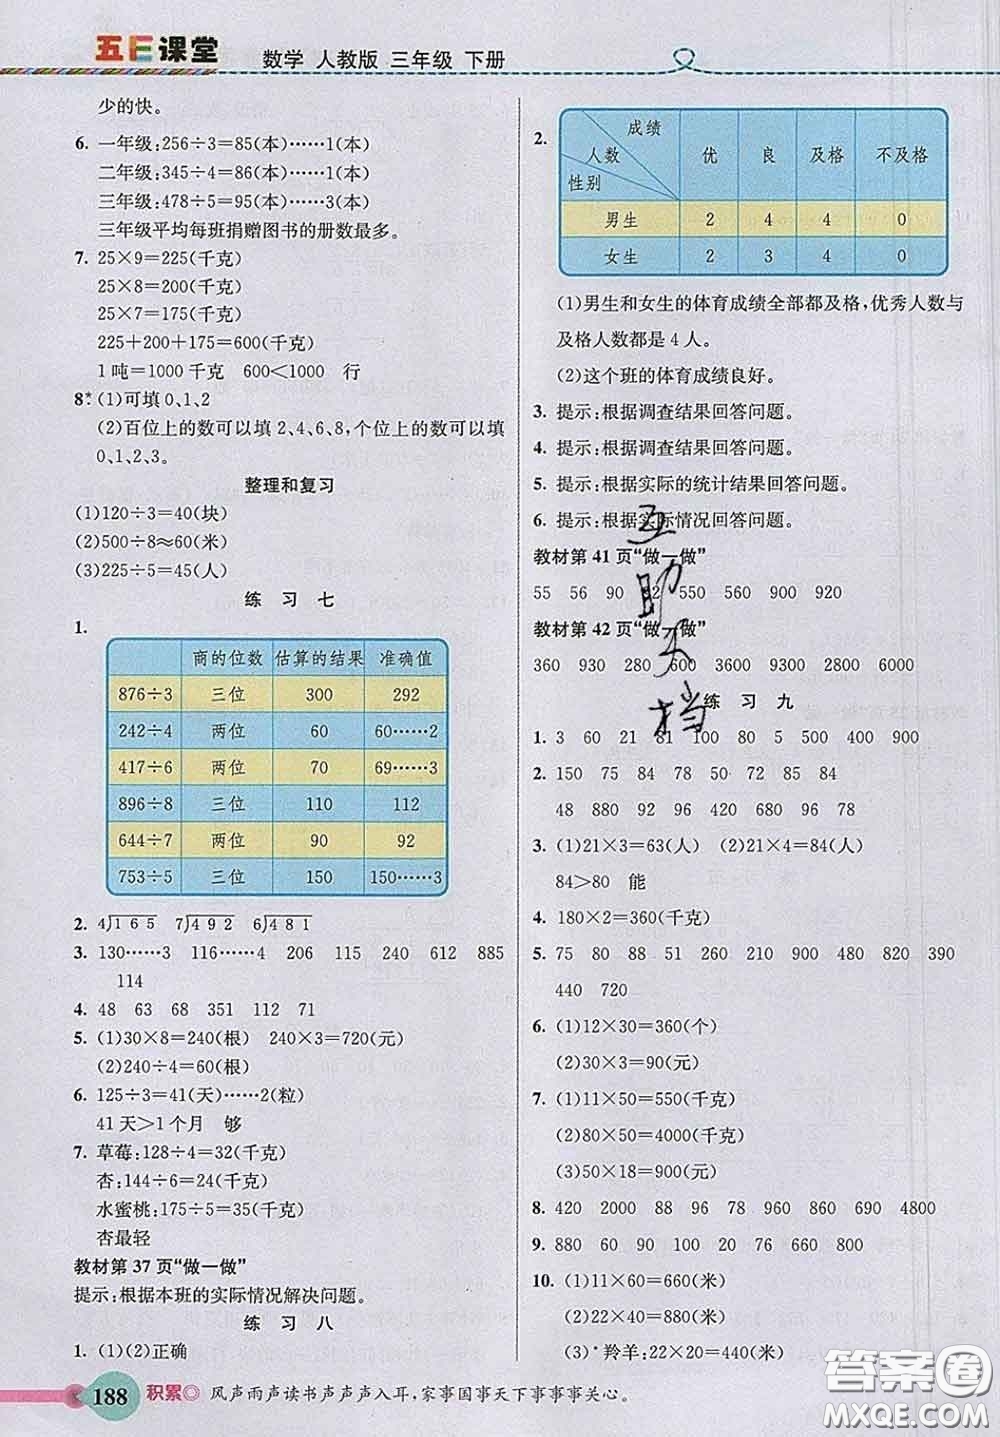 五E课堂 数学 人教版 三年级 下册
少的快。
6. 一年级:256÷3=85(本)……1(本)
二年级:345÷4=86(本)……1(本)
三年级:478÷5=95(本)……3(本)
三年级平均每班捐赠图书的册数最多。
7. 25×9=225(千克)
25×8=200(千克)
25×7=175(千克)
225+200+175=600(千克)
1吨=1000千克 600<1000 行
8*. (1)可填0、1、2
(2)百位上的数可以填2、4、6、8,个位上的数可以填
0、1、2、3。
整理和复习
(1)120÷3=40(块)
(2)500÷8≈60(米)
(3)225÷5=45(人)
练 习 七
1.
商的位数 估算的结果 准确值
876÷3 三位 300 292
242÷4 两位 60 60……2
417÷6 两位 70 69……3
896÷8 三位 110 112
644÷7 两位 90 92
753÷5 三位 150 150……3
2. 4)165 7)492 6)481
3. 130……3 116……4 206 115 240 612 885
114
4. 48 63 68 351 112 71
5. (1)30×8=240(根) 240×3=720(元)
(2)240÷4=60(根)
6. 125÷3=41(天)……2(粒)
41天>1个月 够
7. 草莓:128÷4=32(千克)
杏:144÷6=24(千克)
水蜜桃:175÷5=35(千克)
杏最轻
教材第37页“做一做”
提示:根据本班的实际情况解决问题。
练 习 八
1. (1)(2)正确
2.
成绩 人数 性别 优 良 及格 不及格
男生 2 4 4 0
女生 2 3 4 0
(1)男生和女生的体育成绩全部都及格,优秀人数与
及格人数都是4人。
(2)这个班的体育成绩良好。
3. 提示:根据调查结果回答问题。
4. 提示:根据调查结果回答问题。
5. 提示:根据实际的统计结果回答问题。
6. 提示:根据实际情况回答问题。
教材第41页“做一做”
55 56 90 2 550 560 900 920
教材第42页“做一做”
360 930 280 600 3600 9300 2800 6000
练 习 九
1. 3 60 21 81 100 80 5 500 400 900
2. 150 75 85 78 780 510 57 84
48 880 90 96 420 680 96 78
3. (1)21×3=63(人) (2)21×4=84(人)
84>80 能
4. 180×2=360(千克)
5. 75 80 88 51 260 210 760 480 820 390
440 720
6. (1)12×30=360(个)
(2)30×3=90(元)
7. (1)11×50=550(千克)
(2)80×50=4000(千克)
(3)50×18=900(元)
8. 420 2000 88 96 78 960 690 4800
9. 880 60 90 100 20 76 660 900
10. (1)11×60=660(米)
(2)22×40=880(米)
(3)*羚羊:22×20=440(米)
互助文档
188 积累 风声雨声读书声声声入耳,家事国事天下事事事关心。
答案圈
MXQE.COM